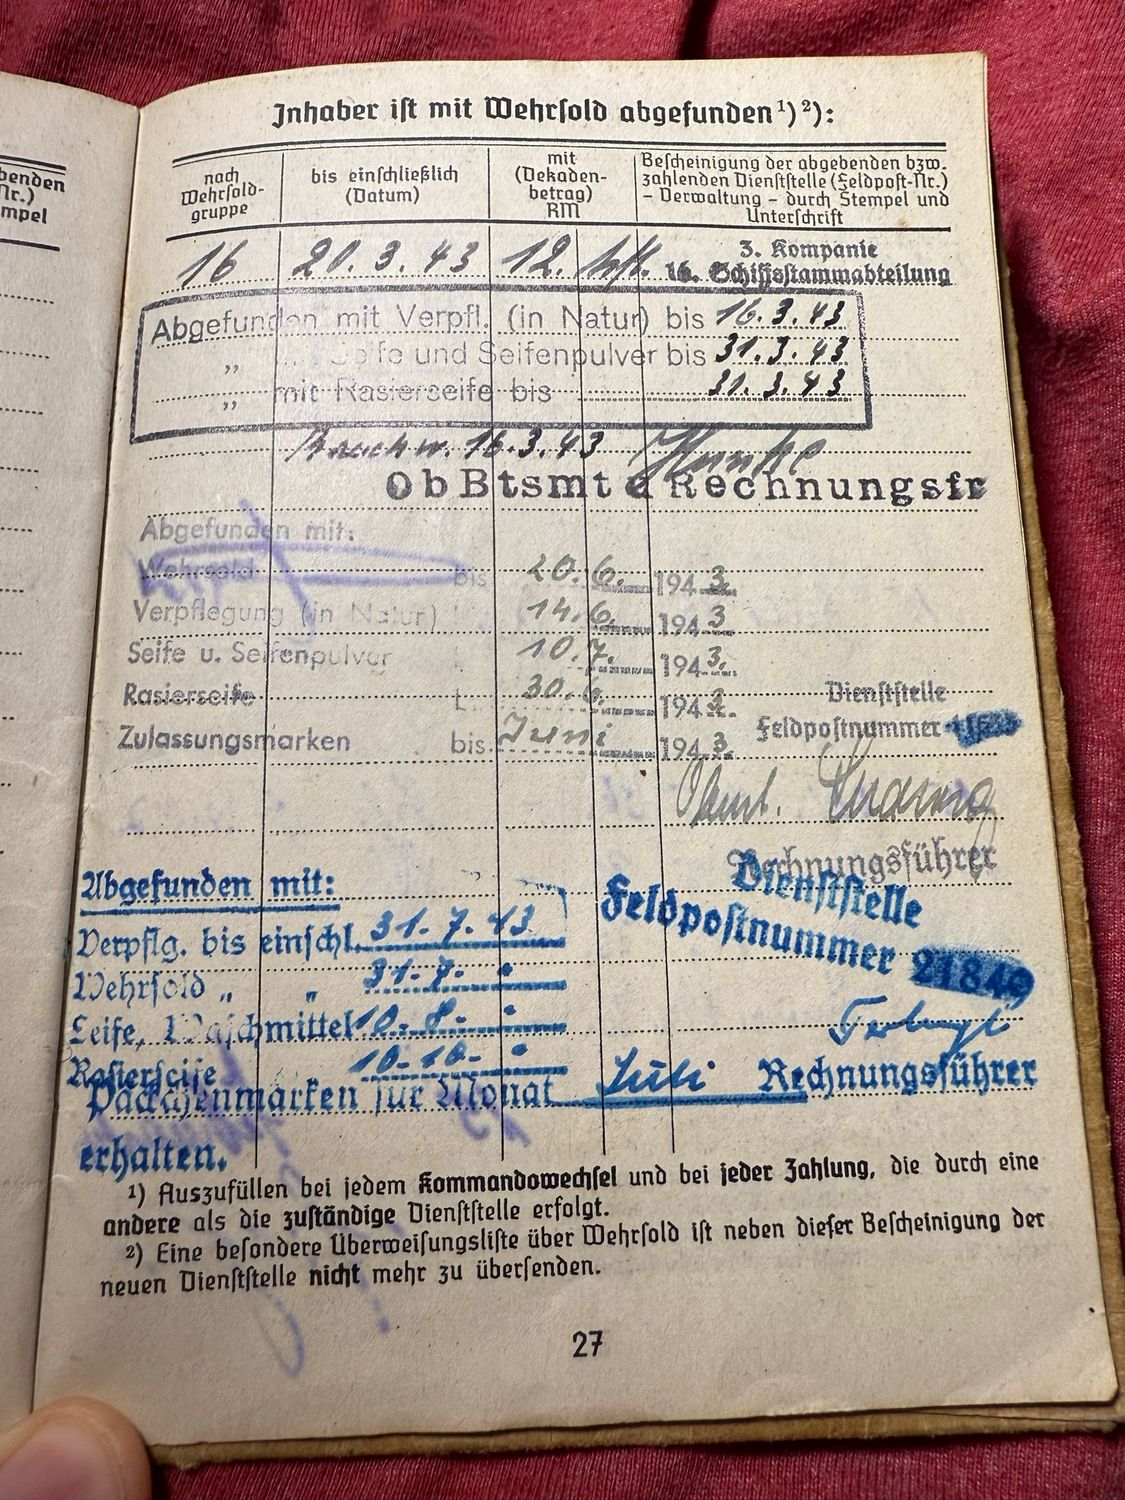 benden
Nr.)
mpel
Inhaber ist mit Wehrsold abgefunden ¹) ²):
nach Wehrsold-gruppe
bis einschließlich (Datum)
mit (Dekaden-betrag) RM
Bescheinigung der abgebenden bzw. zahlenden Dienststelle (Feldpost-Nr.) – Verwaltung – durch Stempel und Unterschrift
3. Kompanie
16 20. 3. 43 12. 16. Schiffsstammabteilung
Abgefunden mit Verpfl. (in Natur) bis 16. 3. 43
„ Seife und Seifenpulver bis 31. 3. 43
„ mit Rasierseife bis 31. 3. 43
16. 3. 43
ObBtsmt d Rechnungsfr
Abgefunden mit:
Wehrsold bis 20. 6. 1943
Verpflegung (in Natur) 14. 6. 1943
Seife u. Seifenpulver 10. 7. 1943.
Rasierseife 30. 6. 1943. Dienststelle
Zulassungsmarken bis Juni 1943. Feldpostnummer
Rechnungsführer
Abgefunden mit:
Dienststelle
Feldpostnummer 21849
Verpflg. bis einschl. 31. 7. 43
Wehrsold „ „ 31. 7. "
Seife, Waschmittel 10. 8. "
Rasierseife 10. 10. "
Päckchenmarken für Monat Juli Rechnungsführer
erhalten.
¹) Auszufüllen bei jedem Kommandowechsel und bei jeder Zahlung, die durch eine
andere als die zuständige Dienststelle erfolgt.
²) Eine besondere Überweisungsliste über Wehrsold ist neben dieser Bescheinigung der
neuen Dienststelle nicht mehr zu übersenden.
27